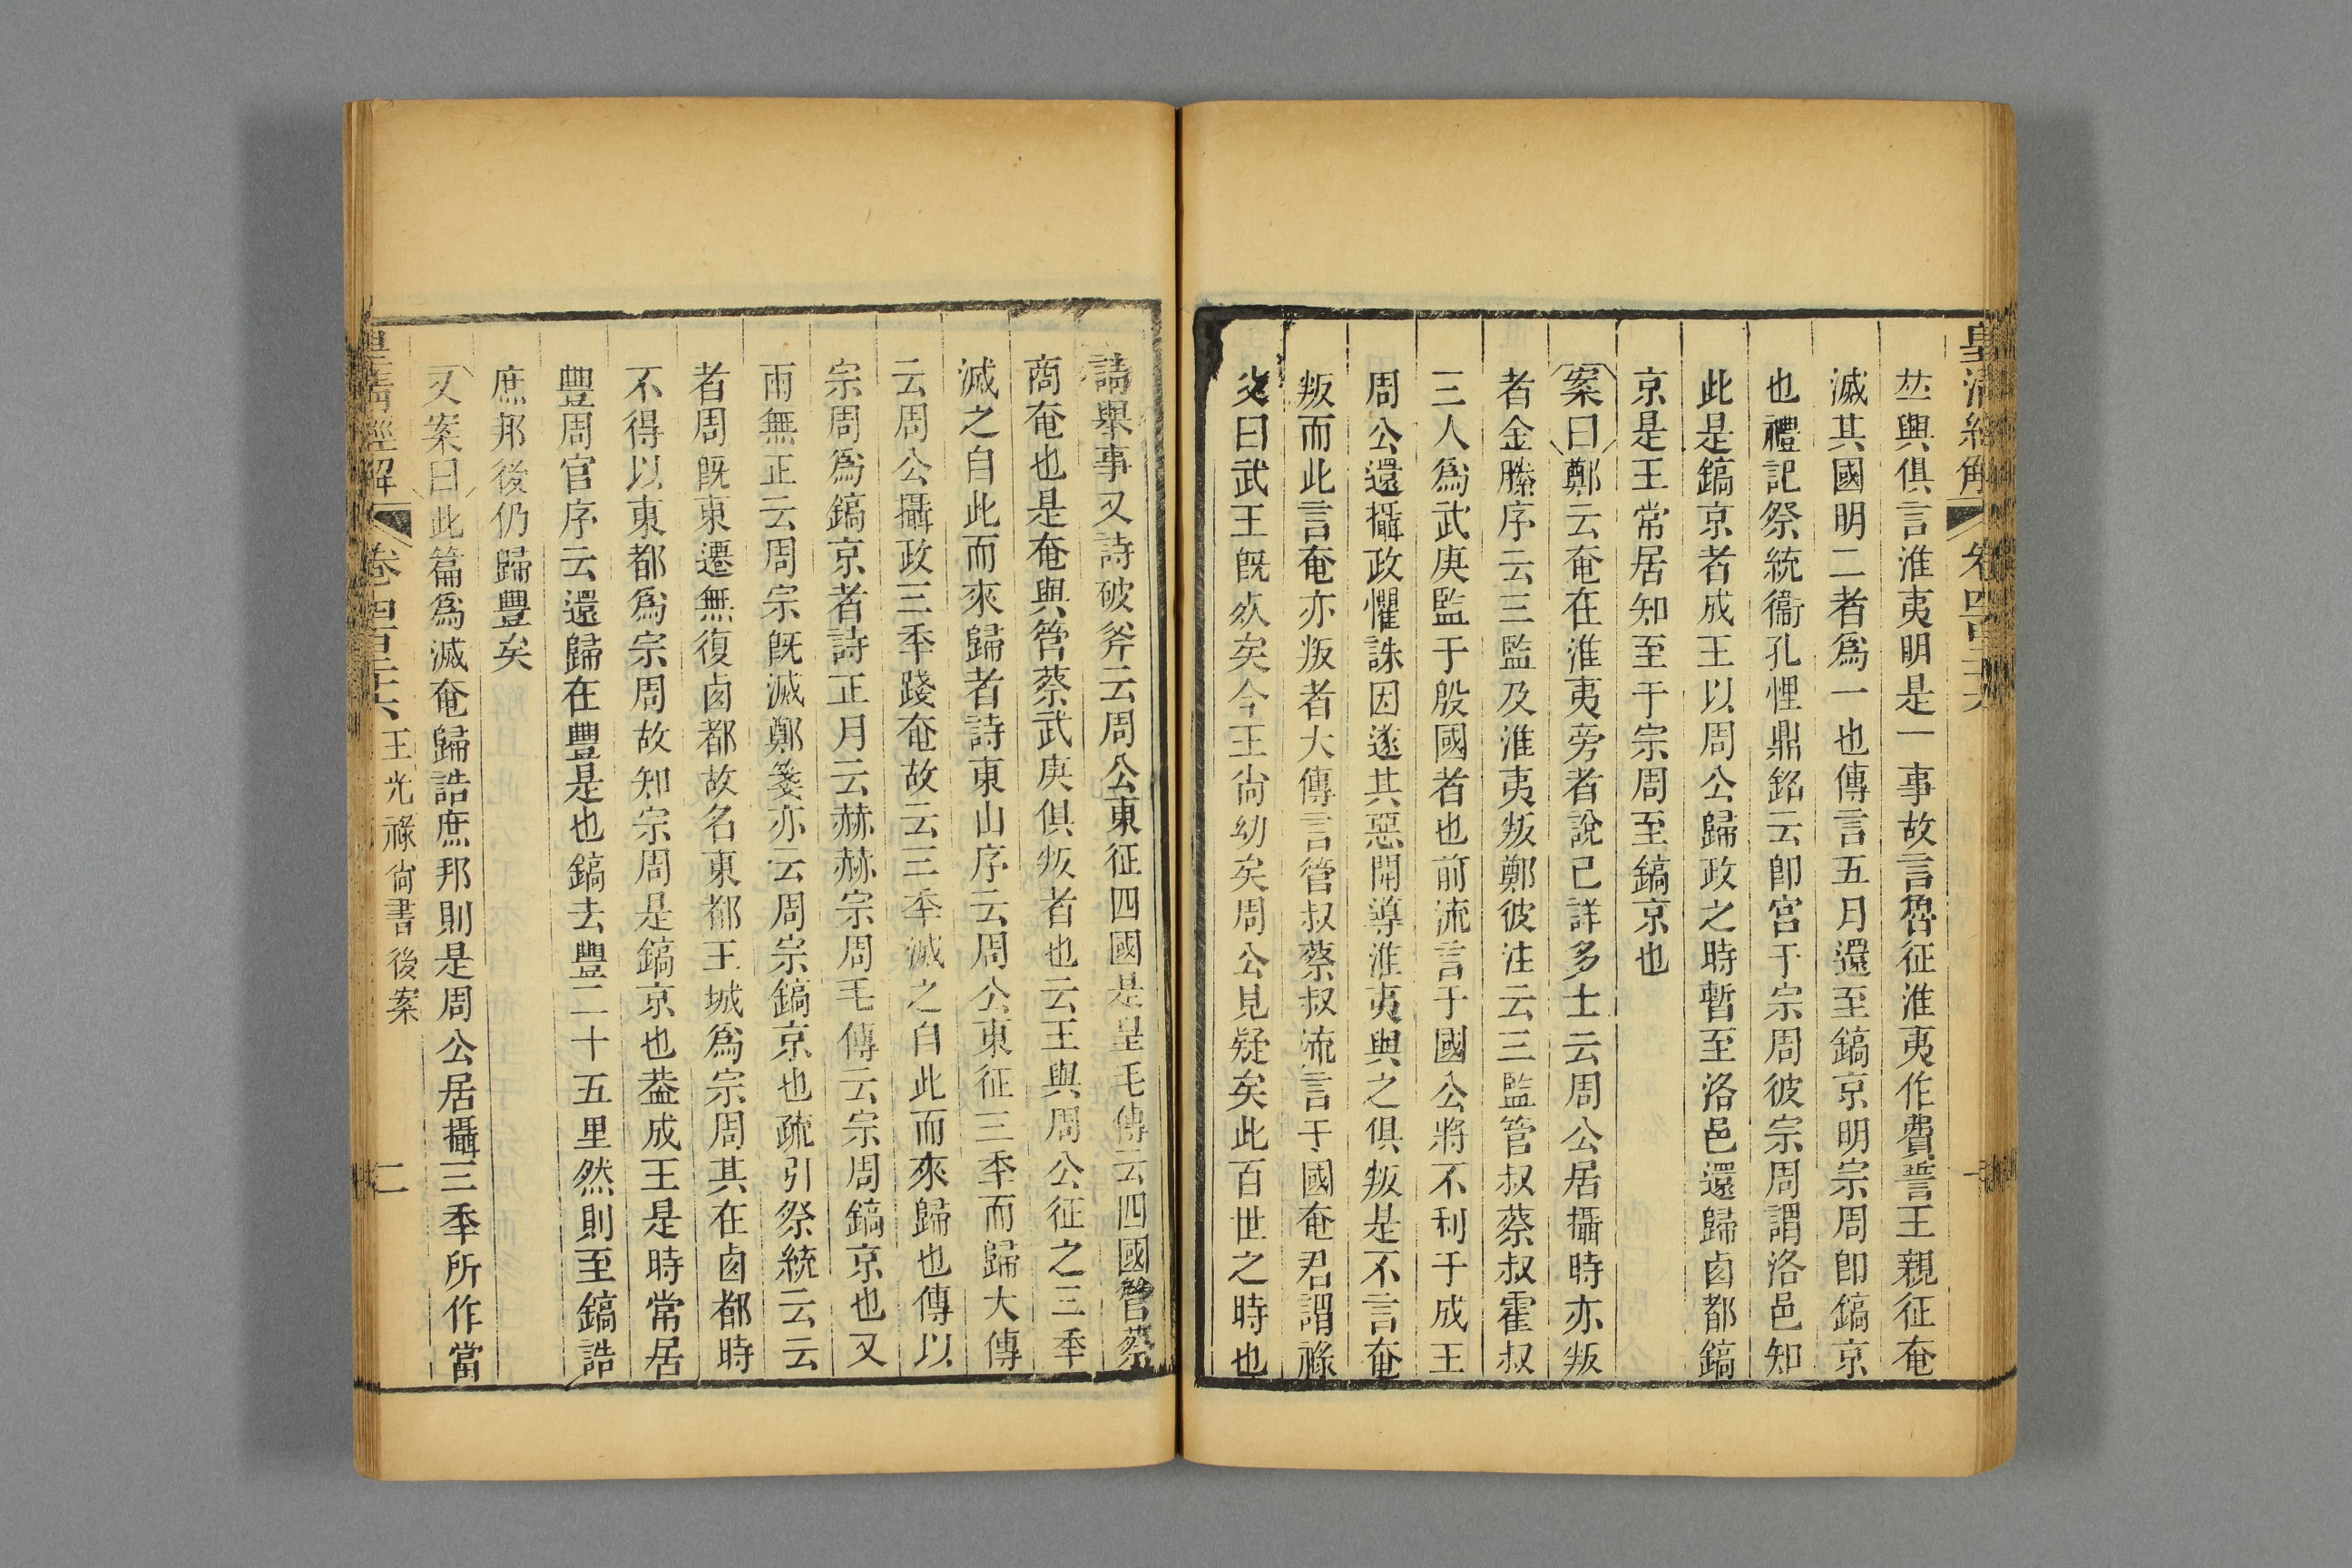 皇清經解 卷四百二十六
𠀤與俱言淮夷明是一事故言魯征淮夷作費誓王親征奄
滅其國明二者爲一也傳言五月還至鎬京明宗周卽鎬京
也禮記祭統衞孔悝鼎銘云卽宮于宗周彼宗周謂洛邑知
此是鎬京者成王以周公歸政之時暫至洛邑還歸卥都鎬
京是王常居知至于宗周至鎬京也
案曰鄭云奄在淮夷旁者說已詳多士云周公居攝時亦叛
者金縢序云三監及淮夷叛鄭彼注云三監管叔蔡叔霍叔
三人爲武庚監于殷國者也前流言于國公將不利于成王
周公還攝政懼誅因遂其惡開導淮夷與之俱叛是不言奄
叛而此言奄亦叛者大傳言管叔蔡叔流言于國奄君謂祿
父曰武王旣𣦸矣今王尙幼矣周公見疑矣此百世之時也
請舉事又詩破斧云周公東征四國是皇毛傳云四國管蔡
商奄也是奄與管蔡武庚俱叛者也云王與周公征之三秊
滅之自此而來歸者詩東山序云周公東征三秊而歸大傳
云周公攝政三秊踐奄故云三秊滅之自此而來歸也傳以
宗周爲鎬京者詩正月云赫赫宗周毛傳云宗周鎬京也又
雨無正云周宗旣滅鄭箋亦云周宗鎬京也疏引祭統云云
者周旣東遷無復卥都故名東都王城爲宗周其在卥都時
不得以東都爲宗周故知宗周是鎬京也葢成王是時常居
豐周官序云還歸在豐是也鎬去豐二十五里然則至鎬誥
庶邦後仍歸豐矣
又案曰此篇爲滅奄歸誥庶邦則是周公居攝三秊所作當
皇清經解 卷四百二十六 王光祿尙書後案 二